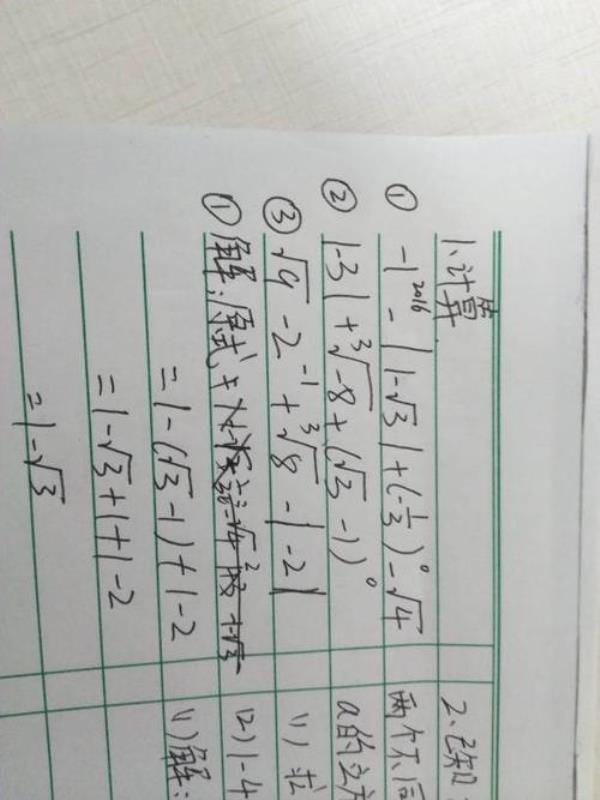 1、计算
① -1²⁰¹⁶ - |1-√3| + (-1/3)⁰ - √4
② |-3| + ³√-8 + (√3 - 1)⁰
③ √9 - 2⁻¹ + ³√8 - |-2|
① 解：原式
= 1-(√3-1)+1-2
= 1-√3+1+1-2
= 1-√3
2、已知
两个不同
a的立方
(1) 求
(2) 1-4
(1) 解：